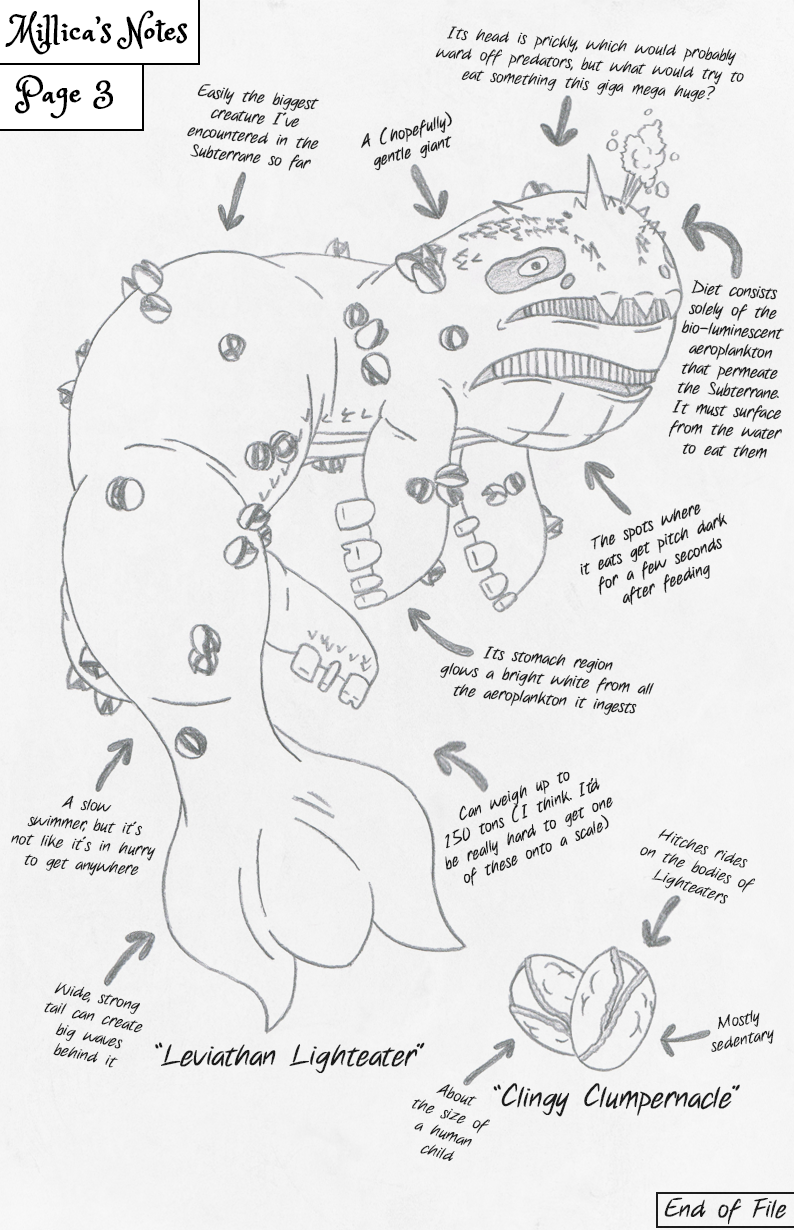 Millica's Notes
Page 3
Its head is prickly, which would probably
ward off predators, but what would try to
eat something this giga mega huge?
Easily the biggest
creature I've
encountered in the
Subterrane so far
A (hopefully)
gentle giant
Diet consists
solely of the
bio-luminescent
aeroplankton
that permeate
the Subterrane.
It must surface
from the water
to eat them
The spots where
it eats get pitch dark
for a few seconds
after feeding
Its stomach region
glows a bright white from all
the aeroplankton it ingests
Can weigh up to
150 tons (I think. It'd
be really hard to get one
of these onto a scale)
A slow
swimmer, but it's
not like it's in hurry
to get anywhere
Hitches rides
on the bodies of
Lighteaters
Wide, strong
tail can create
big waves
behind it
Mostly
sedentary
"Leviathan Lighteater"
"Clingy Clumpernacle"
About
the size of
a human
child
End of File